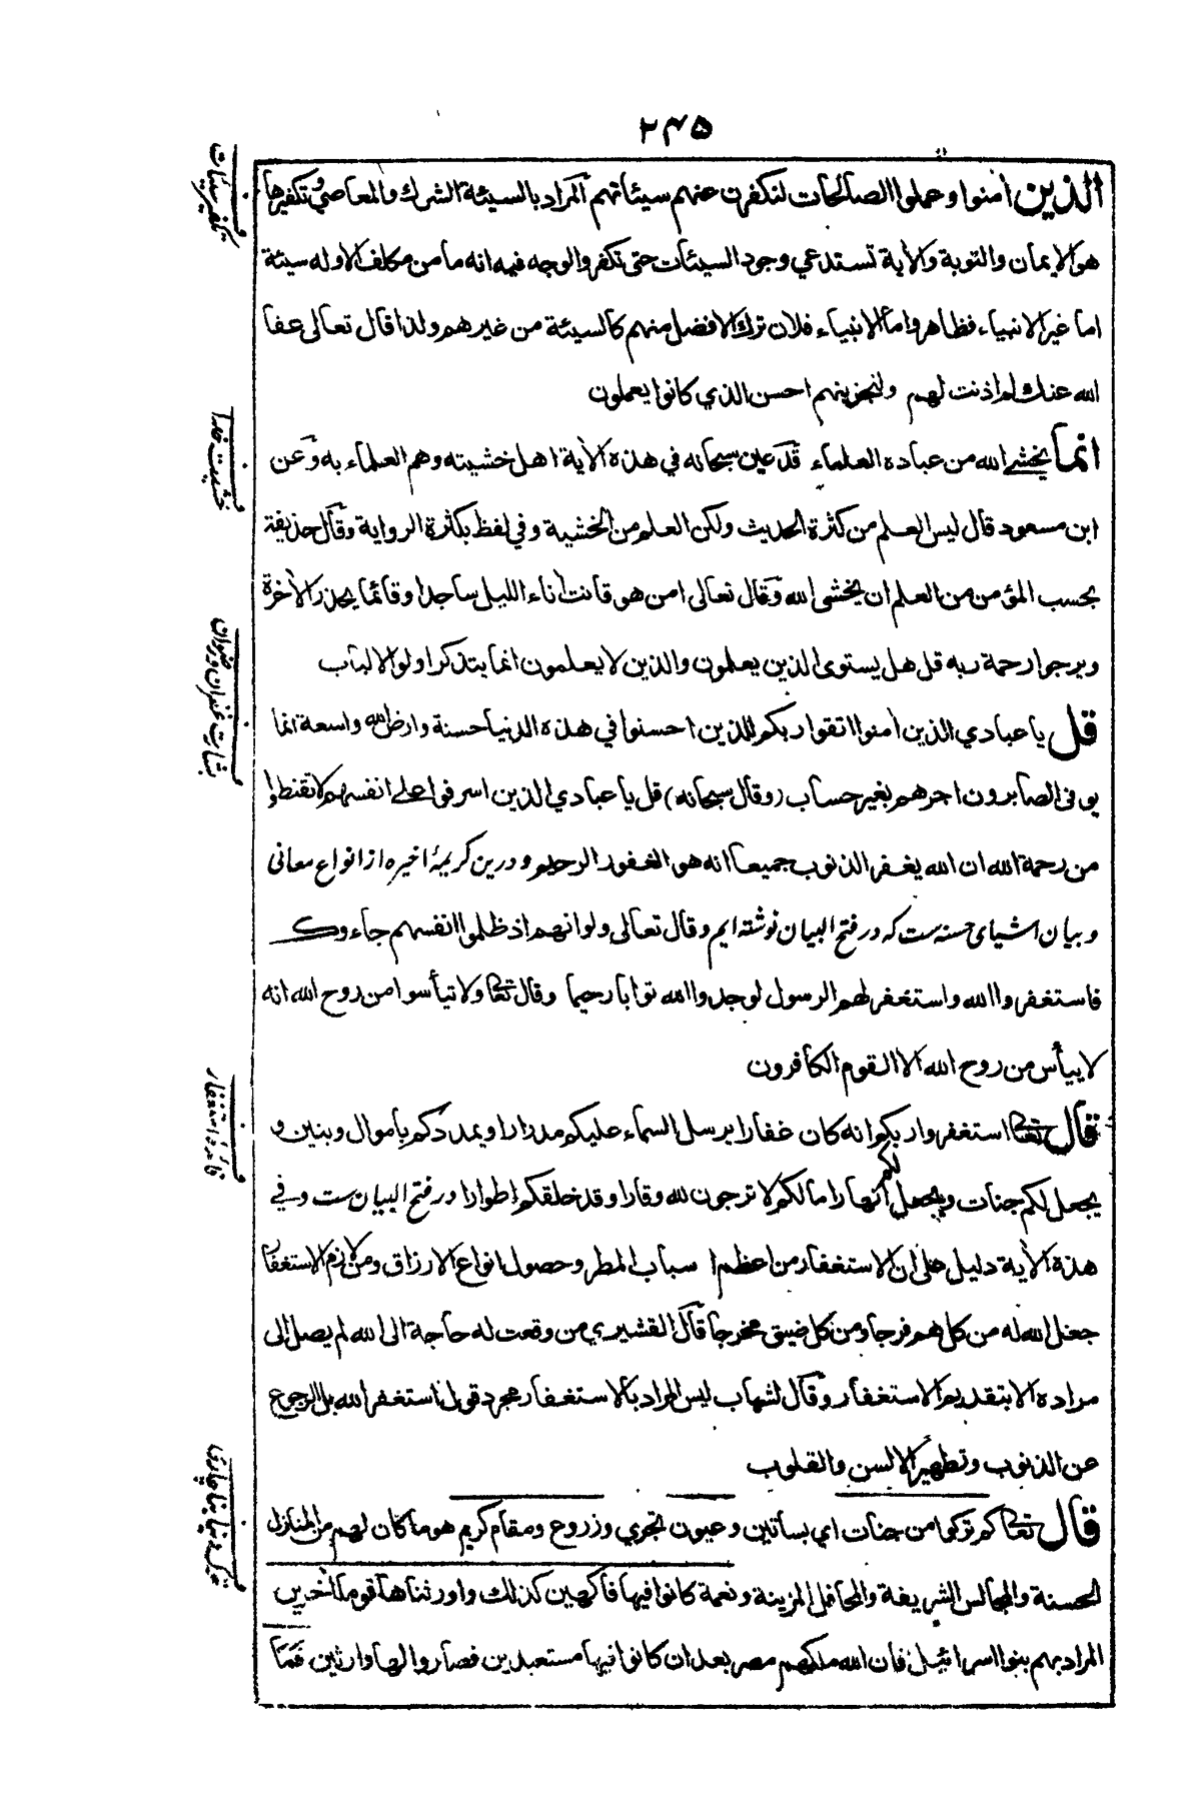 ۲۴۵
الذين اٰمنوا وعملوا الصالحات لنكفرن عنهم سيئاتهم المراد بالسيئة الشرك والمعاصي وتكفيرها
هو الايمان والتوبة والاٰية تستدعي وجود السيئات حتى تكفر والوجه فيه انه ما من مكلف الا وله سيئة
اما غير الانبياء فظاهر واما الانبياء فلان ترك الافضل منهم كالسيئة من غيرهم ولذا قال تعالى عفا
الله عنك لم اذنت لهم ولنجزينهم احسن الذي كانوا يعملون
انما يخشى الله من عباده العلماء قد عين سبحانه في هذه الاٰية اهل خشيته وهم العلماء به وعن
ابن مسعود قال ليس العلم من كثرة الحديث ولكن العلم من الخشية وفي لفظ بكثرة الرواية وقال حذيفة
بحسب المؤمن من العلم ان يخشى الله وقال تعالى امن هو قانت اٰناء الليل ساجدا وقائما يحذر الاٰخرة
ويرجوا رحمة ربه قل هل يستوى الذين يعلمون والذين لا يعلمون انما يتذكر اولو الالباب
قل يا عبادي الذين اٰمنوا اتقوا ربكم للذين احسنوا في هذه الدنيا حسنة وارض الله واسعة انما
يوفى الصابرون اجرهم بغير حساب (وقال سبحانه) قل يا عبادي الذين اسرفوا على انفسهم لا تقنطوا
من رحمة الله ان الله يغفر الذنوب جميعا انه هو الغفور الرحيم ودرين كريمۂ اخيره از انواع معانى
وبيان اشياى حسنه ست كه در فتح البيان نوشته ايم وقال تعالى ولو انهم اذ ظلموا انفسهم جاءوك
فاستغفروا الله واستغفر لهم الرسول لوجدوا الله توابا رحيما وقال تعالى ولا تيأسوا من روح الله انه
لا ييأس من روح الله الا القوم الكافرون
قال تعالى استغفروا ربكم انه كان غفارا يرسل السماء عليكم مدرارا ويمددكم باموال وبنين و
يجعل لكم جنات ويجعل لكم انهارا ما لكم لا ترجون لله وقارا وقد خلقكم اطوارا در فتح البيان ست وفي
هذة الاٰية دليل على ان الاستغفار من اعظم اسباب المطر وحصول انواع الارزاق ومن لازم الاستغفار
جعل الله له من كل هم فرجا ومن كل ضيق مخرجا قال القشيري من وقعت له حاجة الى الله لم يصل الى
مراده الا بتقديم الاستغفار وقال الشهاب ليس المراد بالاستغفار مجرد قول استغفر الله بل الرجوع
عن الذنوب وتطهير الالسن والقلوب
قال تعالى كم تركوا من جنات اي بساتين وعيون تجري وزروع ومقام كريم هو ما كان لهم من المنازل
الحسنة والمجالس الشريفة والمحافل المزينة ونعمة كانوا فيها فاكهين كذلك واورثناها قوما اٰخرين
المراد بهم بنوا اسرائيل فان الله ملكهم مصر بعد ان كانوا فيها مستعبدين فصاروا لها وارثين فما
تكفير سيئات
خشيت خدا
بشارت غفران ورضوان
فائدۀ استغفار